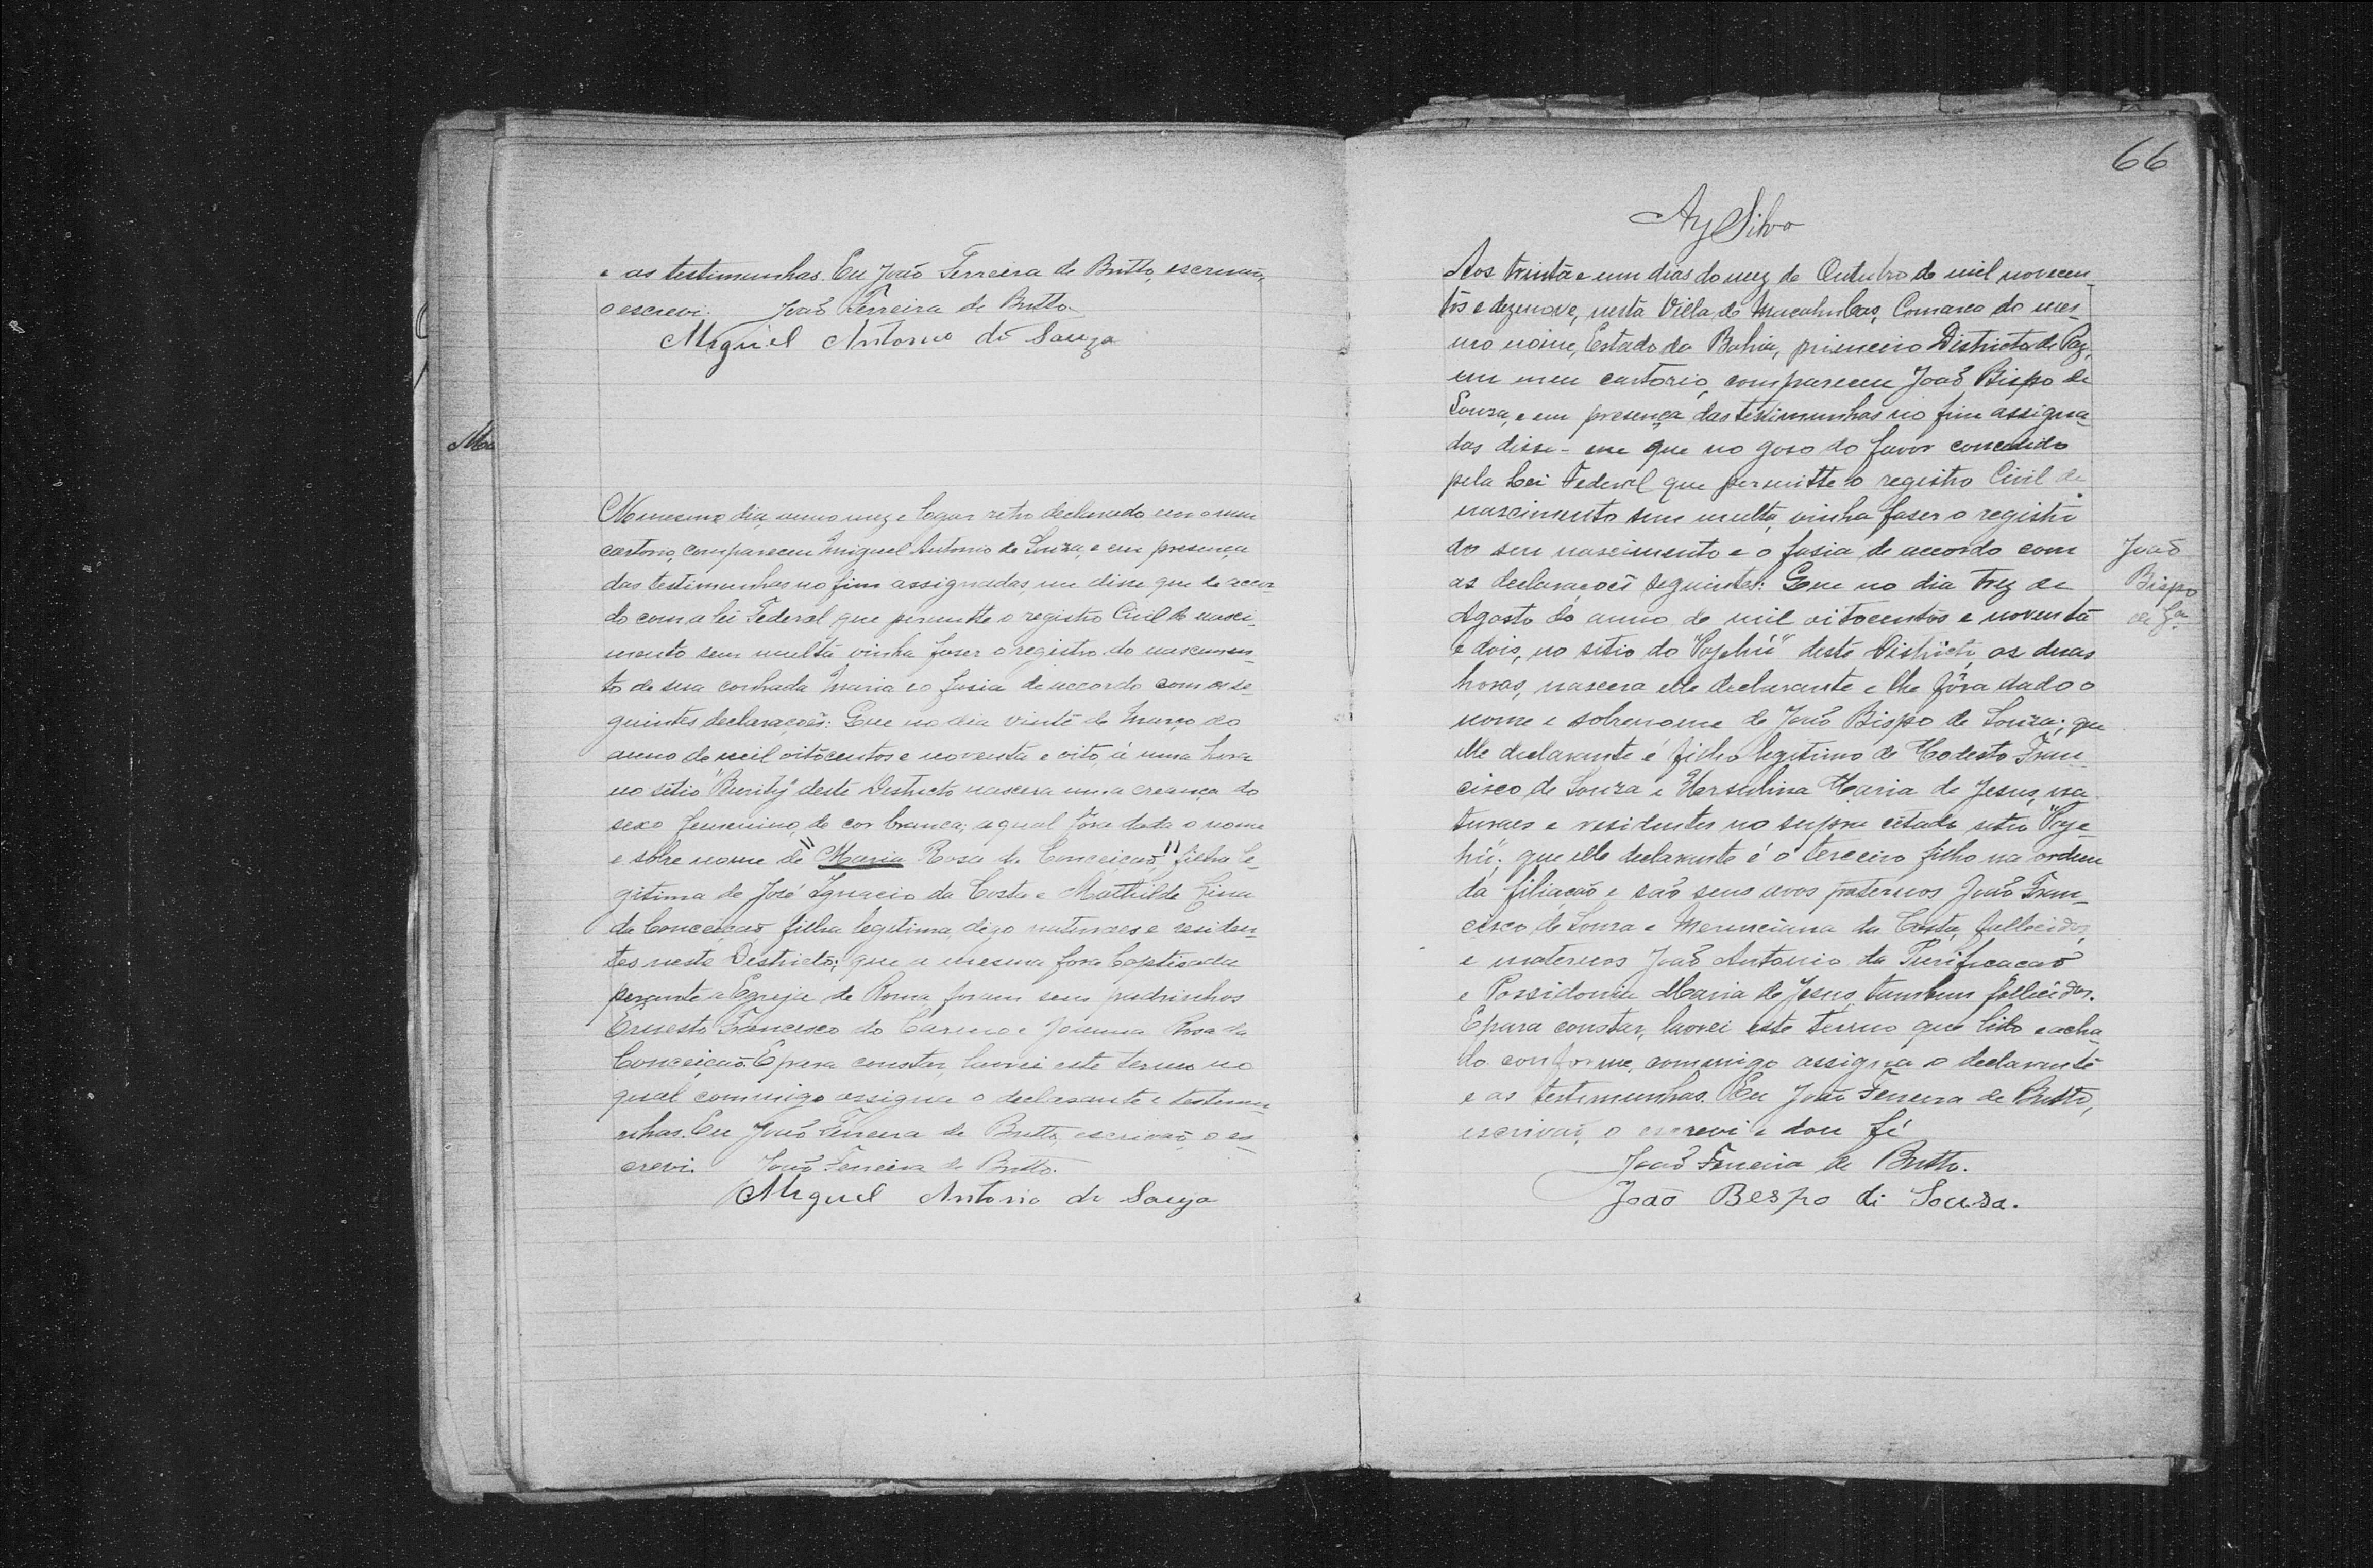 e as testimunhas. Eu João Ferreira de Britto, escrivão,
o escrevi. João Ferreira de Britto.
Miguel Antonio di Souza
No mesmo dia, anno mez e logar retro declarado em o meu
cartorio, compareceu Miguel Antonio de Souza, e em presença
das testimunhas no fim assignadas, me disse que de accor-
do com a lei Federal que permitte o registro Civil de nasci-
mento sem multa vinha faser o registro do nascimen-
to de sua cunhada Maria e o fasia de accordo com as se-
guintes declarações: Que no dia vinte de Março do
anno de mil oitocentos e noventa e oito, á uma hora
no sitio "Burity" deste Districto nascera uma creança do
sexo femenino, de cor branca; a qual fora dada o nome
e sobre nome de "Maria Rosa da Conceição" filha le-
gitima de José Ignacio da Costa e Mathilde Lina
da Conceição filha legitima, digo naturaes e residen-
tes neste Districto; que a mesma fora baptisada
perante a Egreja de Roma foram seus padrinhos
Ernesto Francisco do Carmo e Joanna Rosa da
Conceição. E para constar, lavrei este termo no
qual commigo assigna o declarante e testemu-
nhas. Eu João Ferreira de Britto, escrivão, o es-
crevi. João Ferreira de Britto.
Miguel Antonio di Souza
66
Silva
Aos trinta e um dias do mez de Outubro de mil novecen-
tos e dezenove, nesta Villa de Macahubas, Comarca do mes-
mo nome, Estado da Bahia, primeiro Districto de Paz,
em meu cartorio, compareceu João Bispo de
Souza, e em presença das testimunhas no fim assigna-
das disse-me que no goso do favor concedido
pela Lei Federal que permitte o registro Civil de
nascimento sem multa, vinha faser o registro
do seu nascimento e o fasia de accordo com
as declarações seguintes: Que no dia trez de
Agosto do anno de mil oitocentos e noventa
e dois, no sitio do "Pajehú" deste Districto, as duas
horas, nascera elle declarante e lhe fôra dado o
nome e sobrenome de João Bispo de Souza; que
elle declarante é filho legitimo de Modesto Fran-
cisco de Souza e Hersulina Maria de Jesus, na-
turaes e residentes no supra citado sitio "Paje-
hú"; que elle declarante é o terceiro filho na ordem
da filiação e são seus avos paternos João Fran-
cisco de Souza e Merenciana da Costa, fallecidos,
e maternos João Antonio da Purificação
e Possidonia Maria de Jesus, tambem fallecidos.
E para constar, lavrei este termo que lido e acha-
do conforme, commigo assigna o declarante
e as testimunhas. Eu João Ferreira de Britto,
escrivão, o escrevi e dou fé
João Ferreira de Britto.
João Bespo di Sousa.
João
Bispo
de